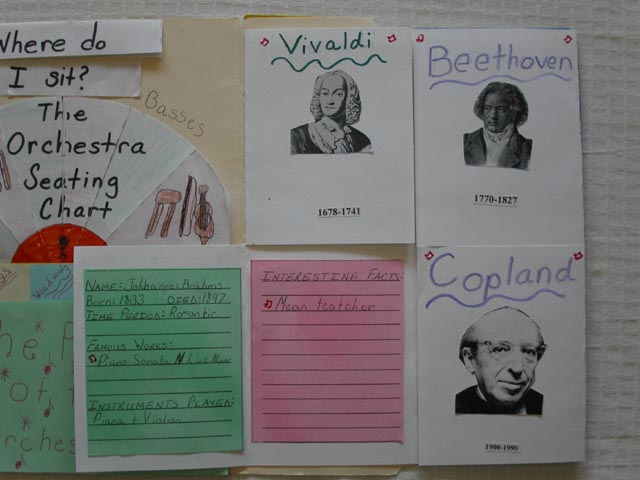 Where do
I sit?
The
Orchestra
Seating
Chart
Basses
Vivaldi
1678-1741
Beethoven
1770-1827
NAME: Johbannes Brahms
Born: 1833 DIED: 1897
TIME PERIOD: Romantic
FAMOUS WORKS:
Piano Sonata N
INSTRUMENTS PLAYED:
Piana + Violian
INTERESTING FACTS:
Mean teatcher
Copland
1900-1990
he
of
rches